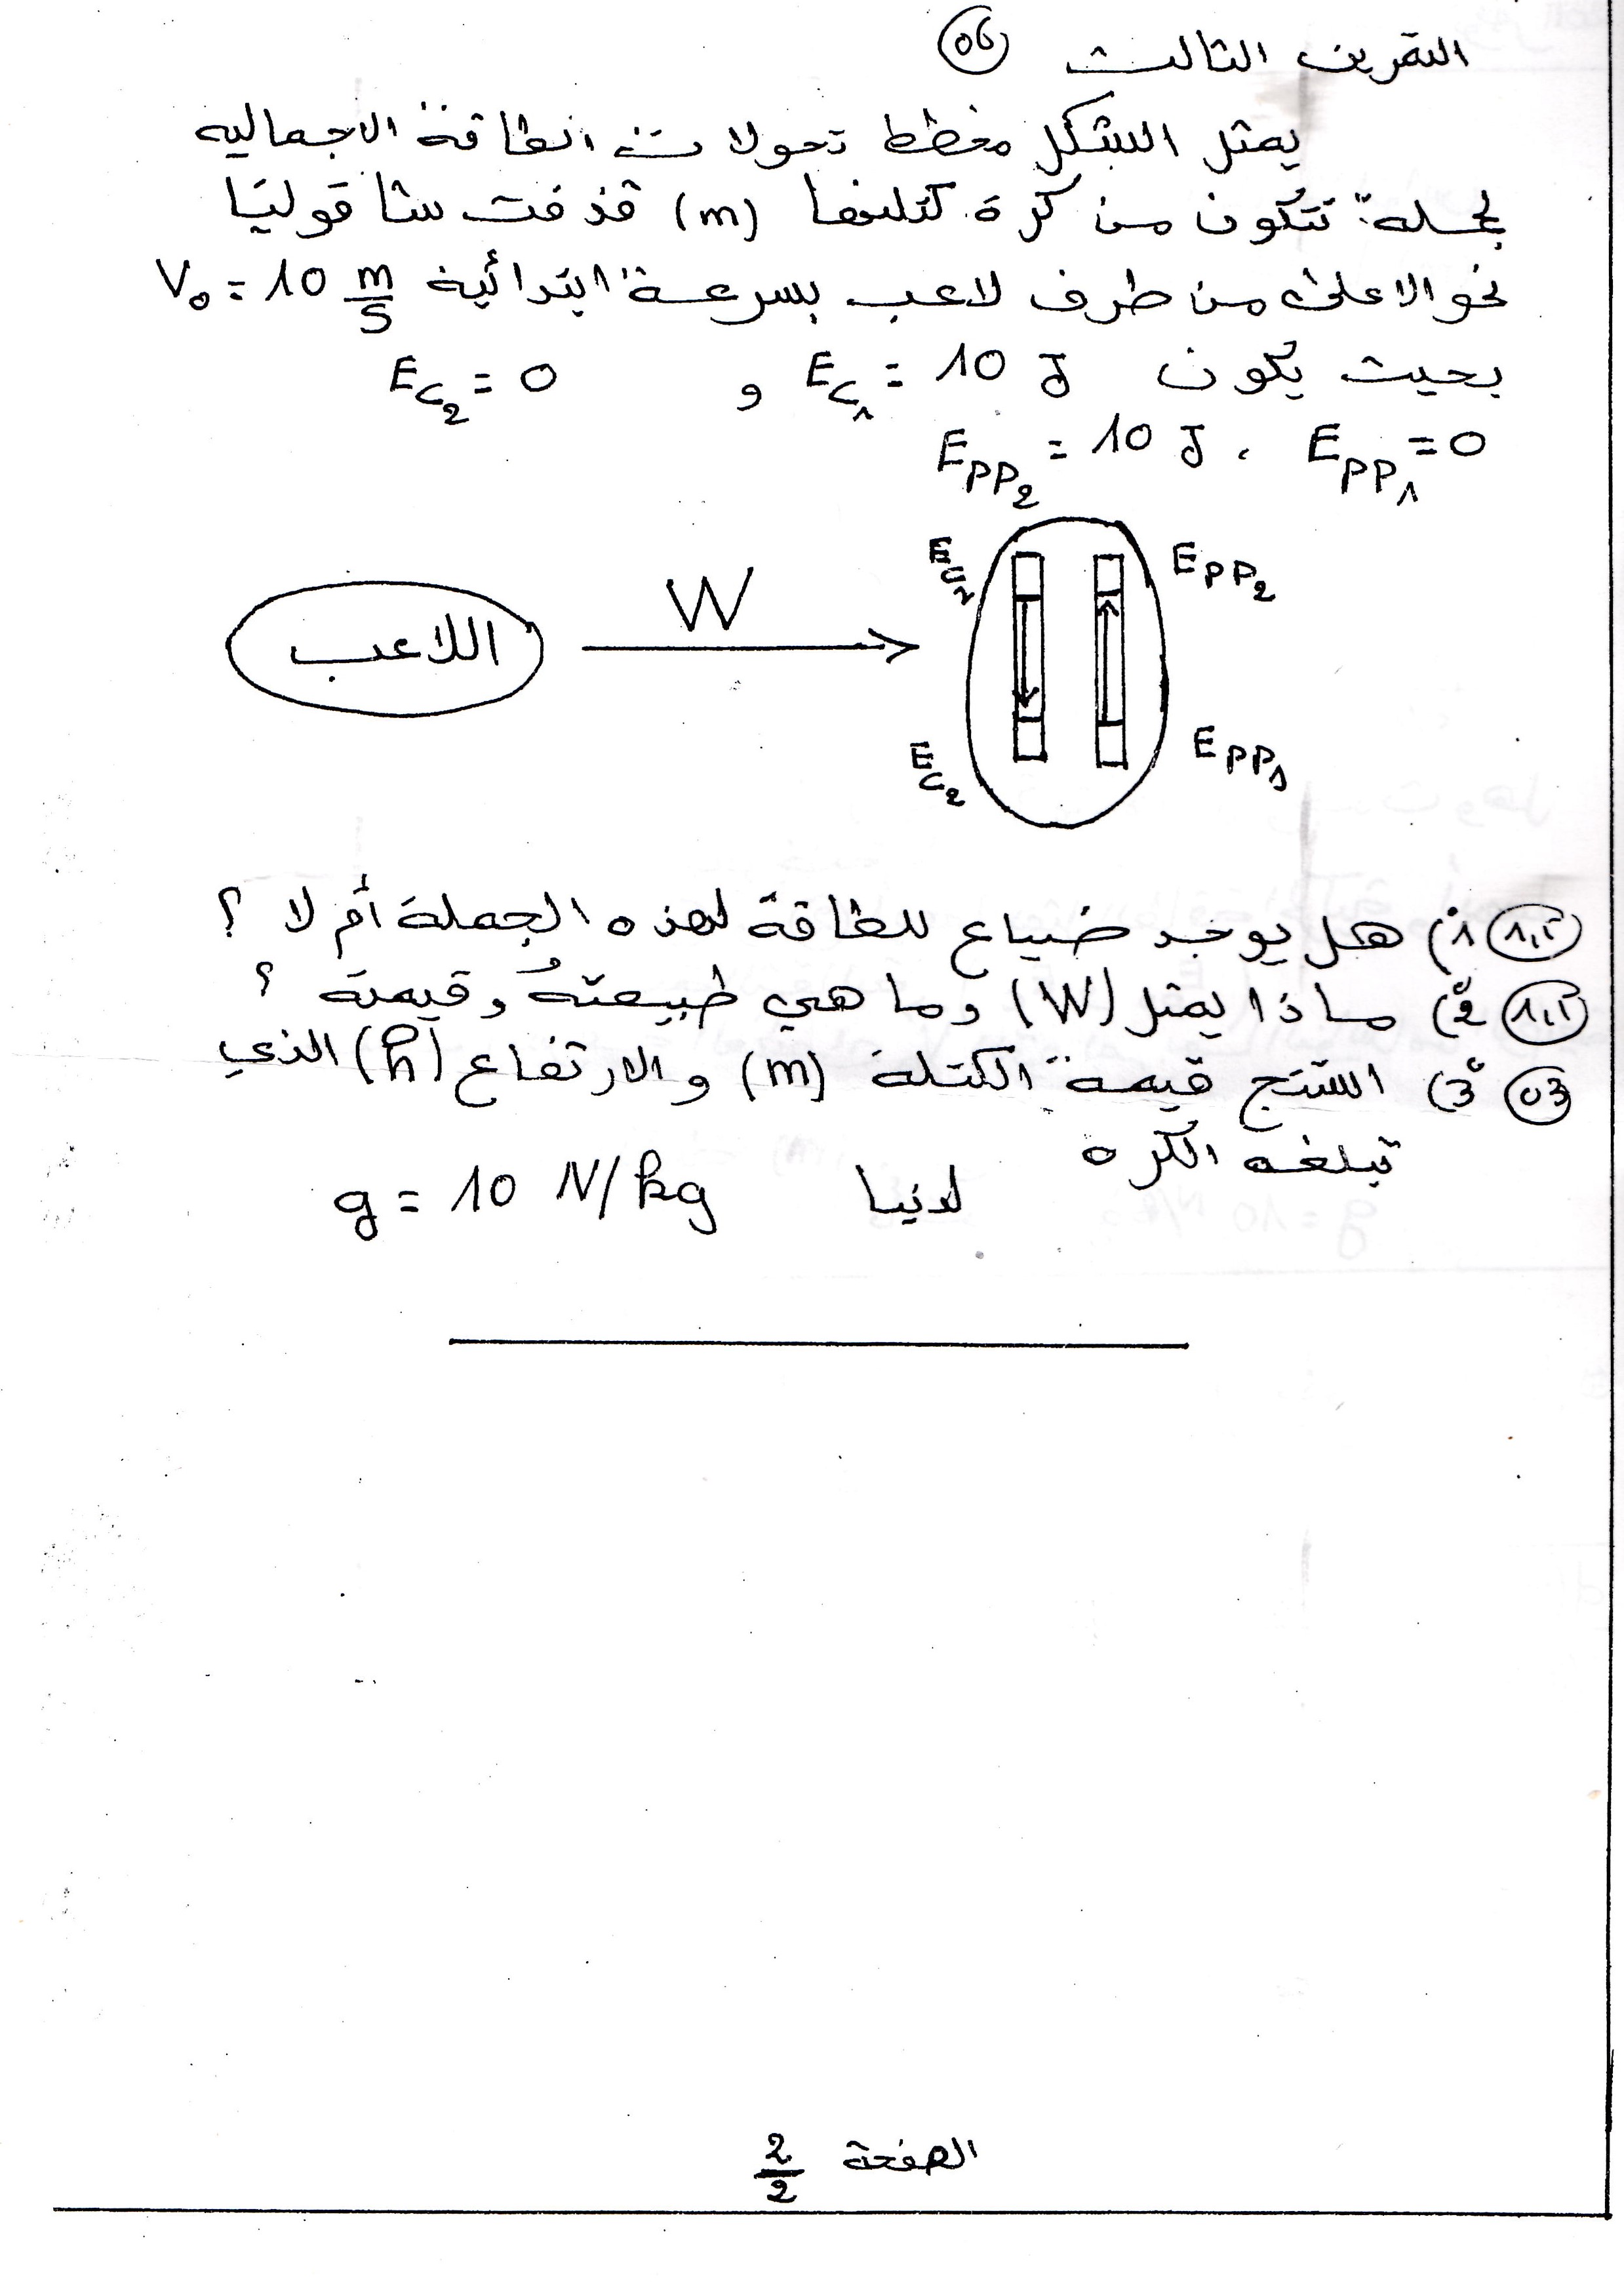 التمرين الثالث 06
يمثل الشكل مخطط تحولات الطاقة الاجماليه
لجسله تتكون من كرة كتلتها (m) قذفت شاقوليًا
نحو الاعلى من طرف لاعب بسرعة ابتدائية V₀ = 10 m/s
بحيث يكون E_C₁ = 10 J و E_C₂ = 0
E_PP₁ = 0 ، E_PP₂ = 10 J
E_PP₂
W
اللاعب
E_C₂
E_PP₁
1) هل يوجد ضياع للطاقة لهذه الجملة أم لا ؟
2) ماذا يمثل (W) وما هي طبيعتهُ وقيمته ؟
03 3) استنتج قيمة الكتلة (m) والارتفاع (h) الذي
تبلغه الكره لدينا g = 10 N/kg
الصفحة 2/2